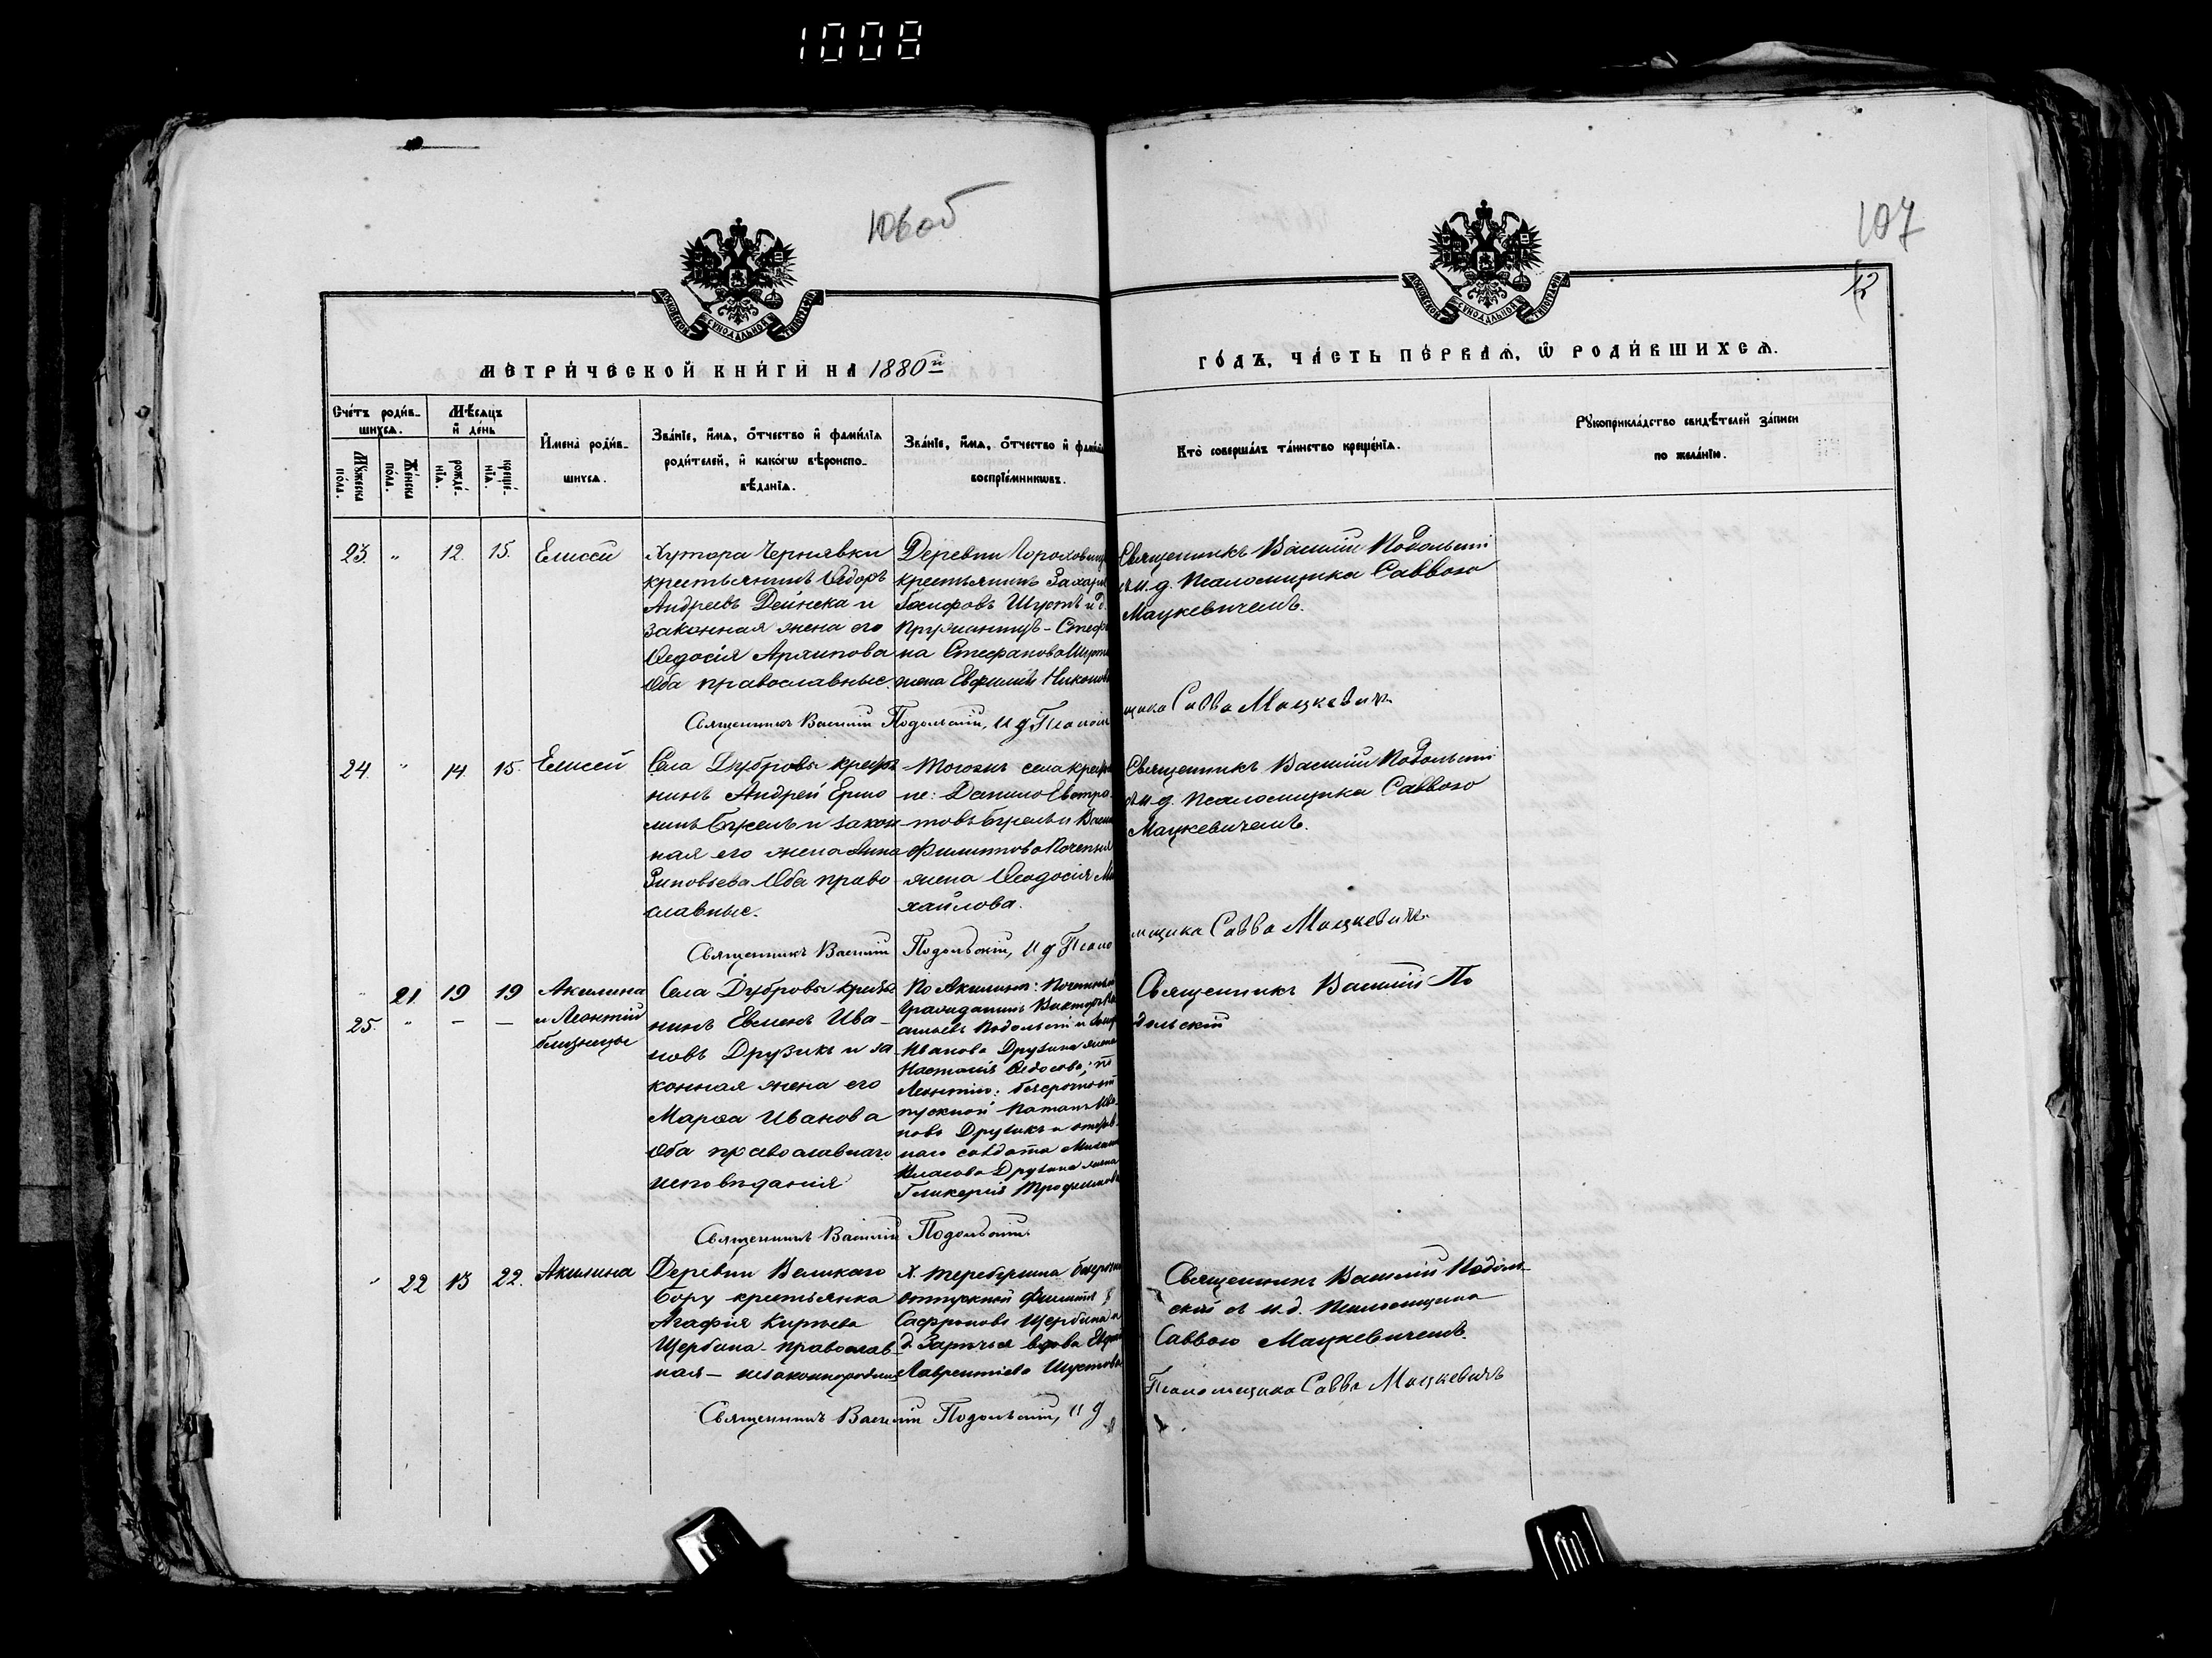 1008
106об
107
12
МОСКОВСКОЙ СѴНОДАЛЬНОЙ ТИПОГРАФІИ
МОСКОВСКОЙ СѴНОДАЛЬНОЙ ТИПОГРАФІИ
МЕТРИ́ЧЕСКОЙ КНИ́ГИ НА 1880й
ГО́ДЪ, ЧА́СТЬ ПЕ́РВАЯ, Ѡ РОДИ́ВШИХСЯ.
Сче́тъ роди́в-
шихся.
Мѣ́сяцъ
и де́нь
Му́жеска по́ла.
Же́нска по́ла.
рожде́-нїя.
креще́-нїя.
Имена̀ роди́в-
шихся.
Зва́нїе, и́мя, о́тчество и фами́лїя
роди́телей, и како́гѡ вѣроиспо-
вѣ́данїя.
Зва́нїе, и́мя, о́тчество и фами́лїя
воспрїе́мникѡвъ.
Кто̀ соверша́лъ та́инство креще́нїя.
Рꙋкоприкла́дство свидѣ́телей за́писи
по жела́нїю.
23. " 12. 15. Елисей
Хутора Чернявки
крестьянинъ Ѳедоръ
Андреевъ Дейнека и
законная жена его
Ѳедосія Архипова
Оба православные.
Деревни
крестьянинъ Захарій
Шустъ и д.
Стеф
на Стефанова
жена Никонова
Священникъ Василій Подольскій
съ и.д. псаломщика Саввою
Мацкевичемъ.
Священникъ Василій Подольскій, и д Псалом
щика Савва Мацкевичъ
24. " 14. 15. Елисей
Села Дубровы крестья
нинъ Андрей Ермо
и закон
ная его жена Анна
Зиновьева Оба право
славные.
Тогожъ села крестья
не: Данило Евстра
товъ и
Филиппова
жена Ѳеодосія Ми
хайлова.
Священникъ Василій Подольскій
съ и.д. псаломщика Саввою
Мацкевичемъ.
Священникъ Василій Подольскій, и д Псало
мщика Савва Мацкевичъ
" 21 19 19 Акилина
25. " — — и Леонтій
близнецы
Села Дубровы крестья
нинъ Евменъ Ива-
новъ Друзикъ и за
конная жена его
Марѳа Иванова
Оба православнаго
исповѣданія
По Акилинѣ: Почетный
Гражданинъ Викторъ Ва
сильевъ Подольскій и
Иванова Друзика жена
Настасія Ѳедосова; по
Леонтію: безсрочноот
пускной Потапъ Ива
новъ Друзикъ и отстав
наго солдата Михаила
Власова Друзика жена
Гликерія Трофимова
Священникъ Василій По
дольскій
Священникъ Василій Подольскій
" 22 13 22. Акилина
Деревни Великаго
бору крестьянка
Агафія Карпова
Щербина - православ-
ная — незаконнорожден
Х. Теребужина безсрочно
отпускной Филиппъ
Сафроновъ Щербина и
д. Зарѣчья вдова
Лаврентіева Шустова
Священникъ Василій Подоль-
скій съ и.д. псаломщика
Саввою Мацкевичемъ.
Священникъ Василій Подольскій, и д
Псаломщика Савва Мацкевичъ